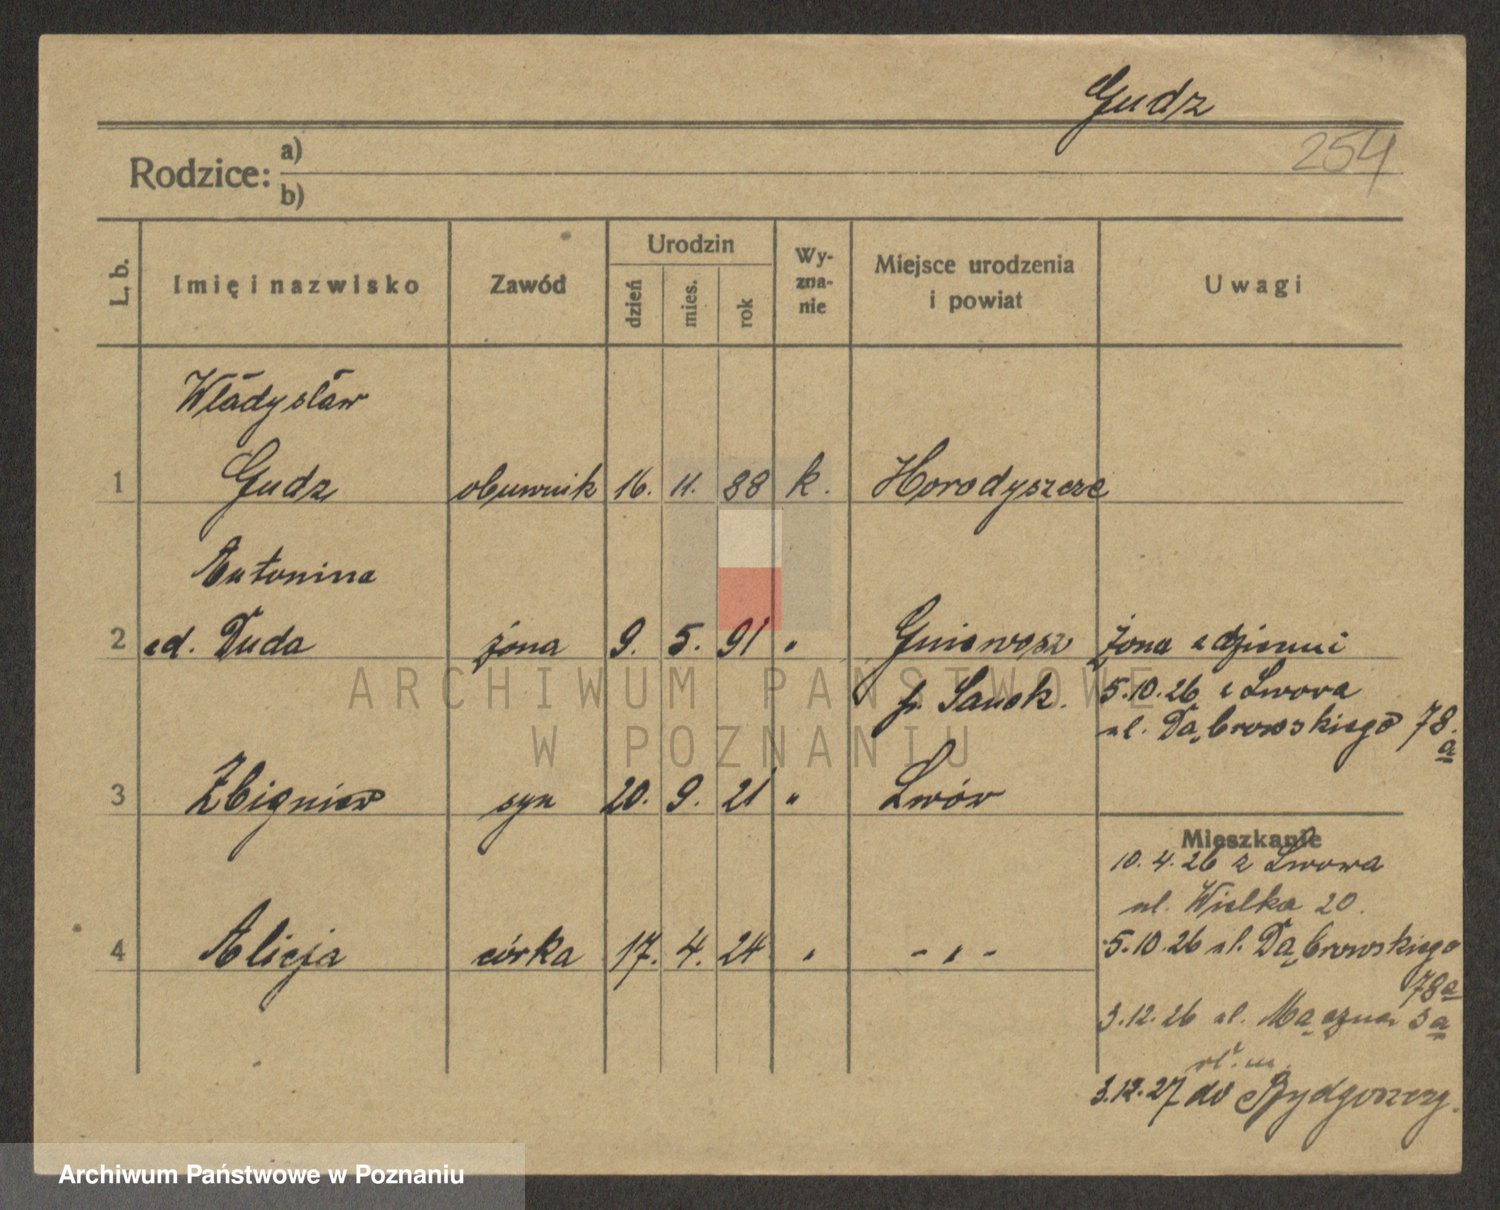 Gudz
254
Rodzice: a)
b)
L. b. Imię i nazwisko Zawód Urodzin dzień mies. rok Wyznanie Miejsce urodzenia i powiat Uwagi
Władysław
1 Gudz obuwnik 16. 11. 88 k. Horodyszcze
Antonina
2 Duda żona 9. 5. 91 " Gniewosz żona z dziećmi
p. Sanok. 5.10.26 z Lwowa
ul. Dąbrowskiego 78a
3 Zbigniew syn 20. 9. 21 " Lwów
Mieszkanie
10.4.26 z Lwowa
ul. Wielka 20.
4 Alicja córka 17. 4. 24 " - " - 5.10.26 ul. Dąbrowskiego
78a
3.12.26 ul. Mączna 3a
3.12.27 do Bydgoszczy.
ARCHIWUM PAŃSTWOWE
W POZNANIU
Archiwum Państwowe w Poznaniu